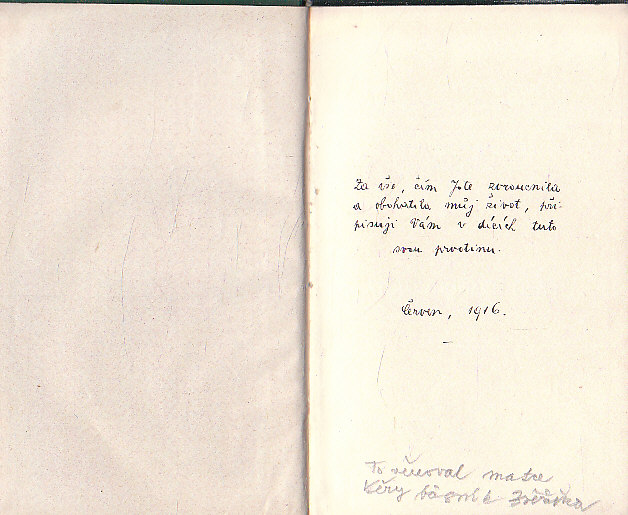 Za vše, čím Jste zvroucnila
a obohatila můj život, při-
pisuji Vám v dících tuto
svou prvotinu.
Červen, 1916.
To věnoval matce
Věry básník